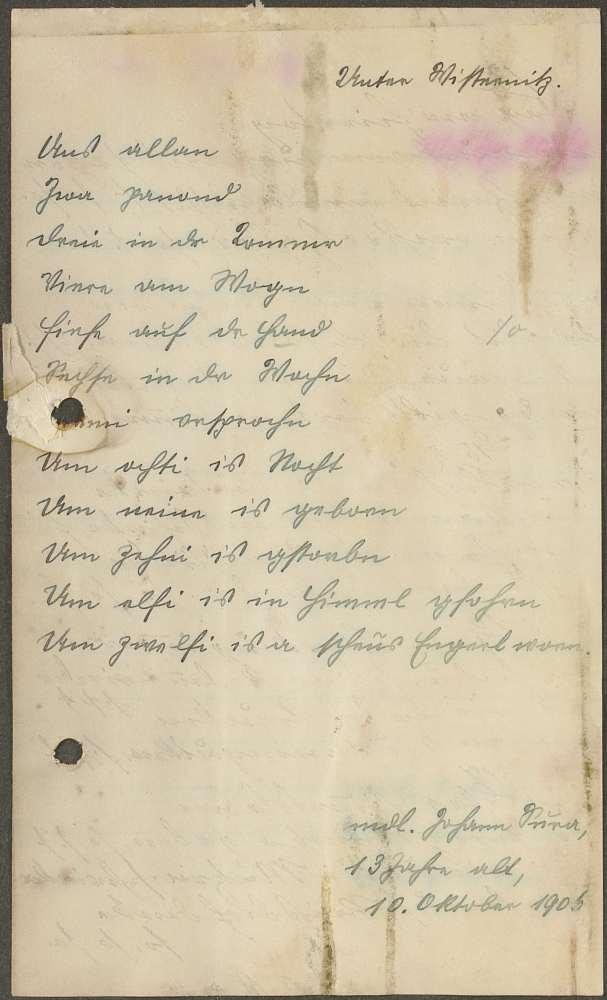 Unter Wisternitz.
Aus allan
Zwa panond
Dreie in dr Kommr
Viere am Wogn
Fiefe auf dr Hand
Sechse in dr Wochn
vrsprochn
Um ochti is Nocht
Um neine is geboren
Um zehni is gstorbn
Um elfi is in Himml gfohrn
Um zwelfi is a scheus Engerl worn.
mdl. Johann Sura,
13 Jahre alt,
10. Oktober 1905